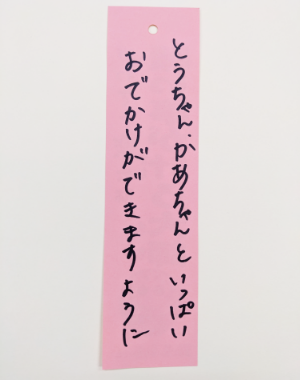 とうちゃん・かあちゃんといっぱい
おでかけができますように